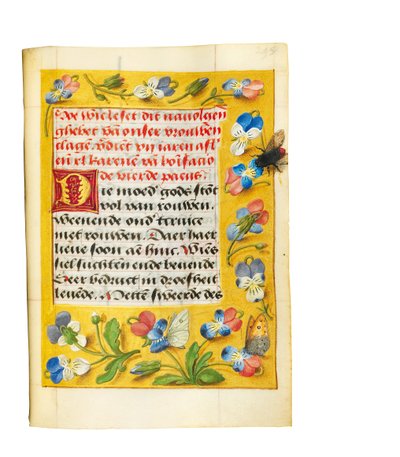 wie leset dit navolgen
ghebet vā onser vrouwen
clage vdiēt vij iaren afl
en xl karenē vā bōifacio
de vierde paeus.
Die moed' gods stōt
vol van rouwen.
Weenende ond' tcruce
met rouwen. Daer haer
lieue soon ae hinc. Wies
siel suchten ende beuende
Seer bedruct in droefheit
leuede. Metten sweerde des